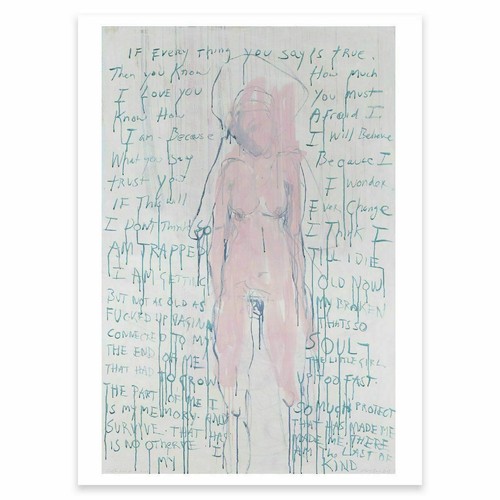 IF EVERY THING YOU SAY IS TRUE.
Then you Know How Much
I LOVE YOU You Must
Know How Afraid I
I am. Because I Will Believe
What you Say Because I
trust you I Wonder.
IF This will Ever Change
I DON'T Think So I Think I
AM TRAPPED TILL I DIE
I AM GETTING OLD NOW
BUT NOT AS OLD AS MY BROKEN
FUCKED UP VAGINA THATS SO
CONNECTED TO MY SOUL
THE END OF ME THE LITTLE GIRL
THAT HAD TO GROW UP TOO FAST.
THE PART OF ME I SO MUCH PROTECT
IS MY MEMORY. AND THAT HAS MADE ME
SURVIVE. THAT HAS MADE ME. THERE
IS NO OTHER I AM The LAST OF
MY KIND